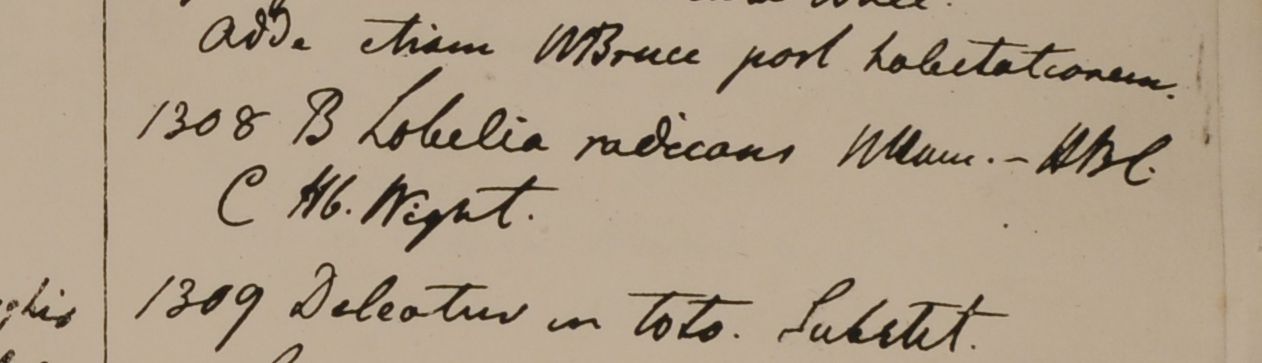 adde etiam WBruce post habitationem.
1308 B Lobelia radicans Wall. - HBC.
C Hb. Wight.
1309 Deleatur in toto. Substit.